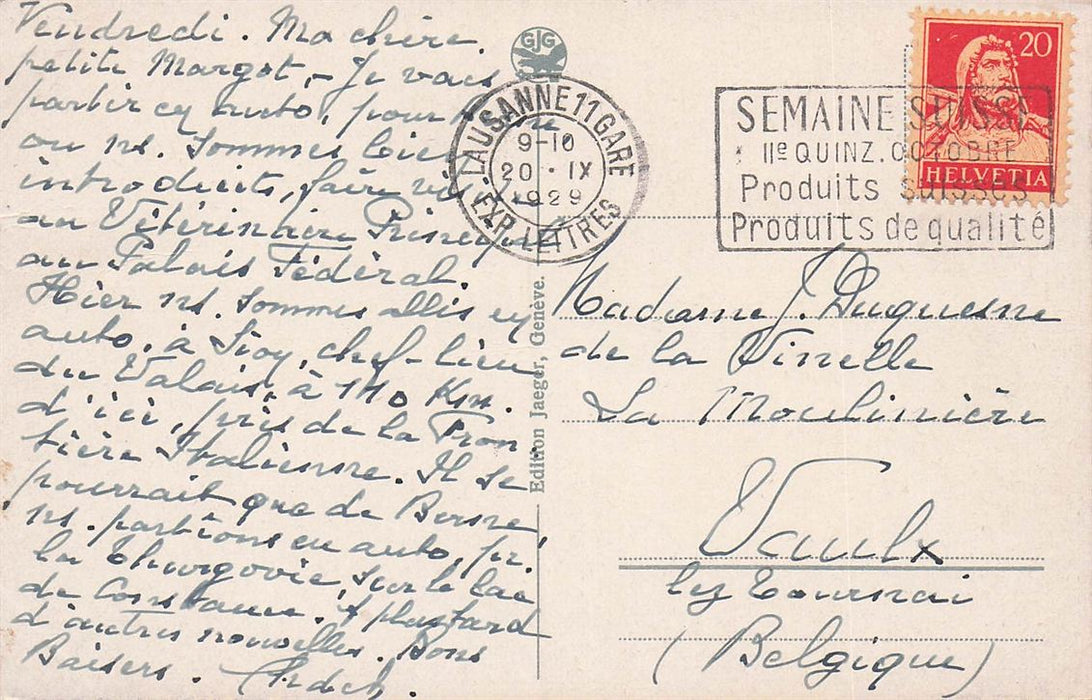 Vendredi. Ma chère
petite Margot, - Je vais
partir en auto, pour
où ns. sommes bien
introduits, faire visite
au Vétérinaire Princip
au Palais Fédéral.
Hier ns. sommes allés en
auto, à Sion, chef-lieu
du Valais, à 110 Km.
d'ici, près de la Fron
tière Italienne. Il se
pourrait que de Berne
ns. partions en auto, pr.
la Thurgovie, sur le lac
de Constance. A plus tard
d'autres nouvelles. Bons
Baisers.
GJG
LAUSANNE 11 GARE
9-10
20·IX
1929
EXP. LETTRES
SEMAINE SUISSE
IIe QUINZ. OCTOBRE
Produits SUISSES
Produits de qualité
20
HELVETIA
Edition Jaeger, Genève.
Madame J. Duquesne
de la Vinelle
La Moulinière
Vaulx
lez Tournai
(Belgique)